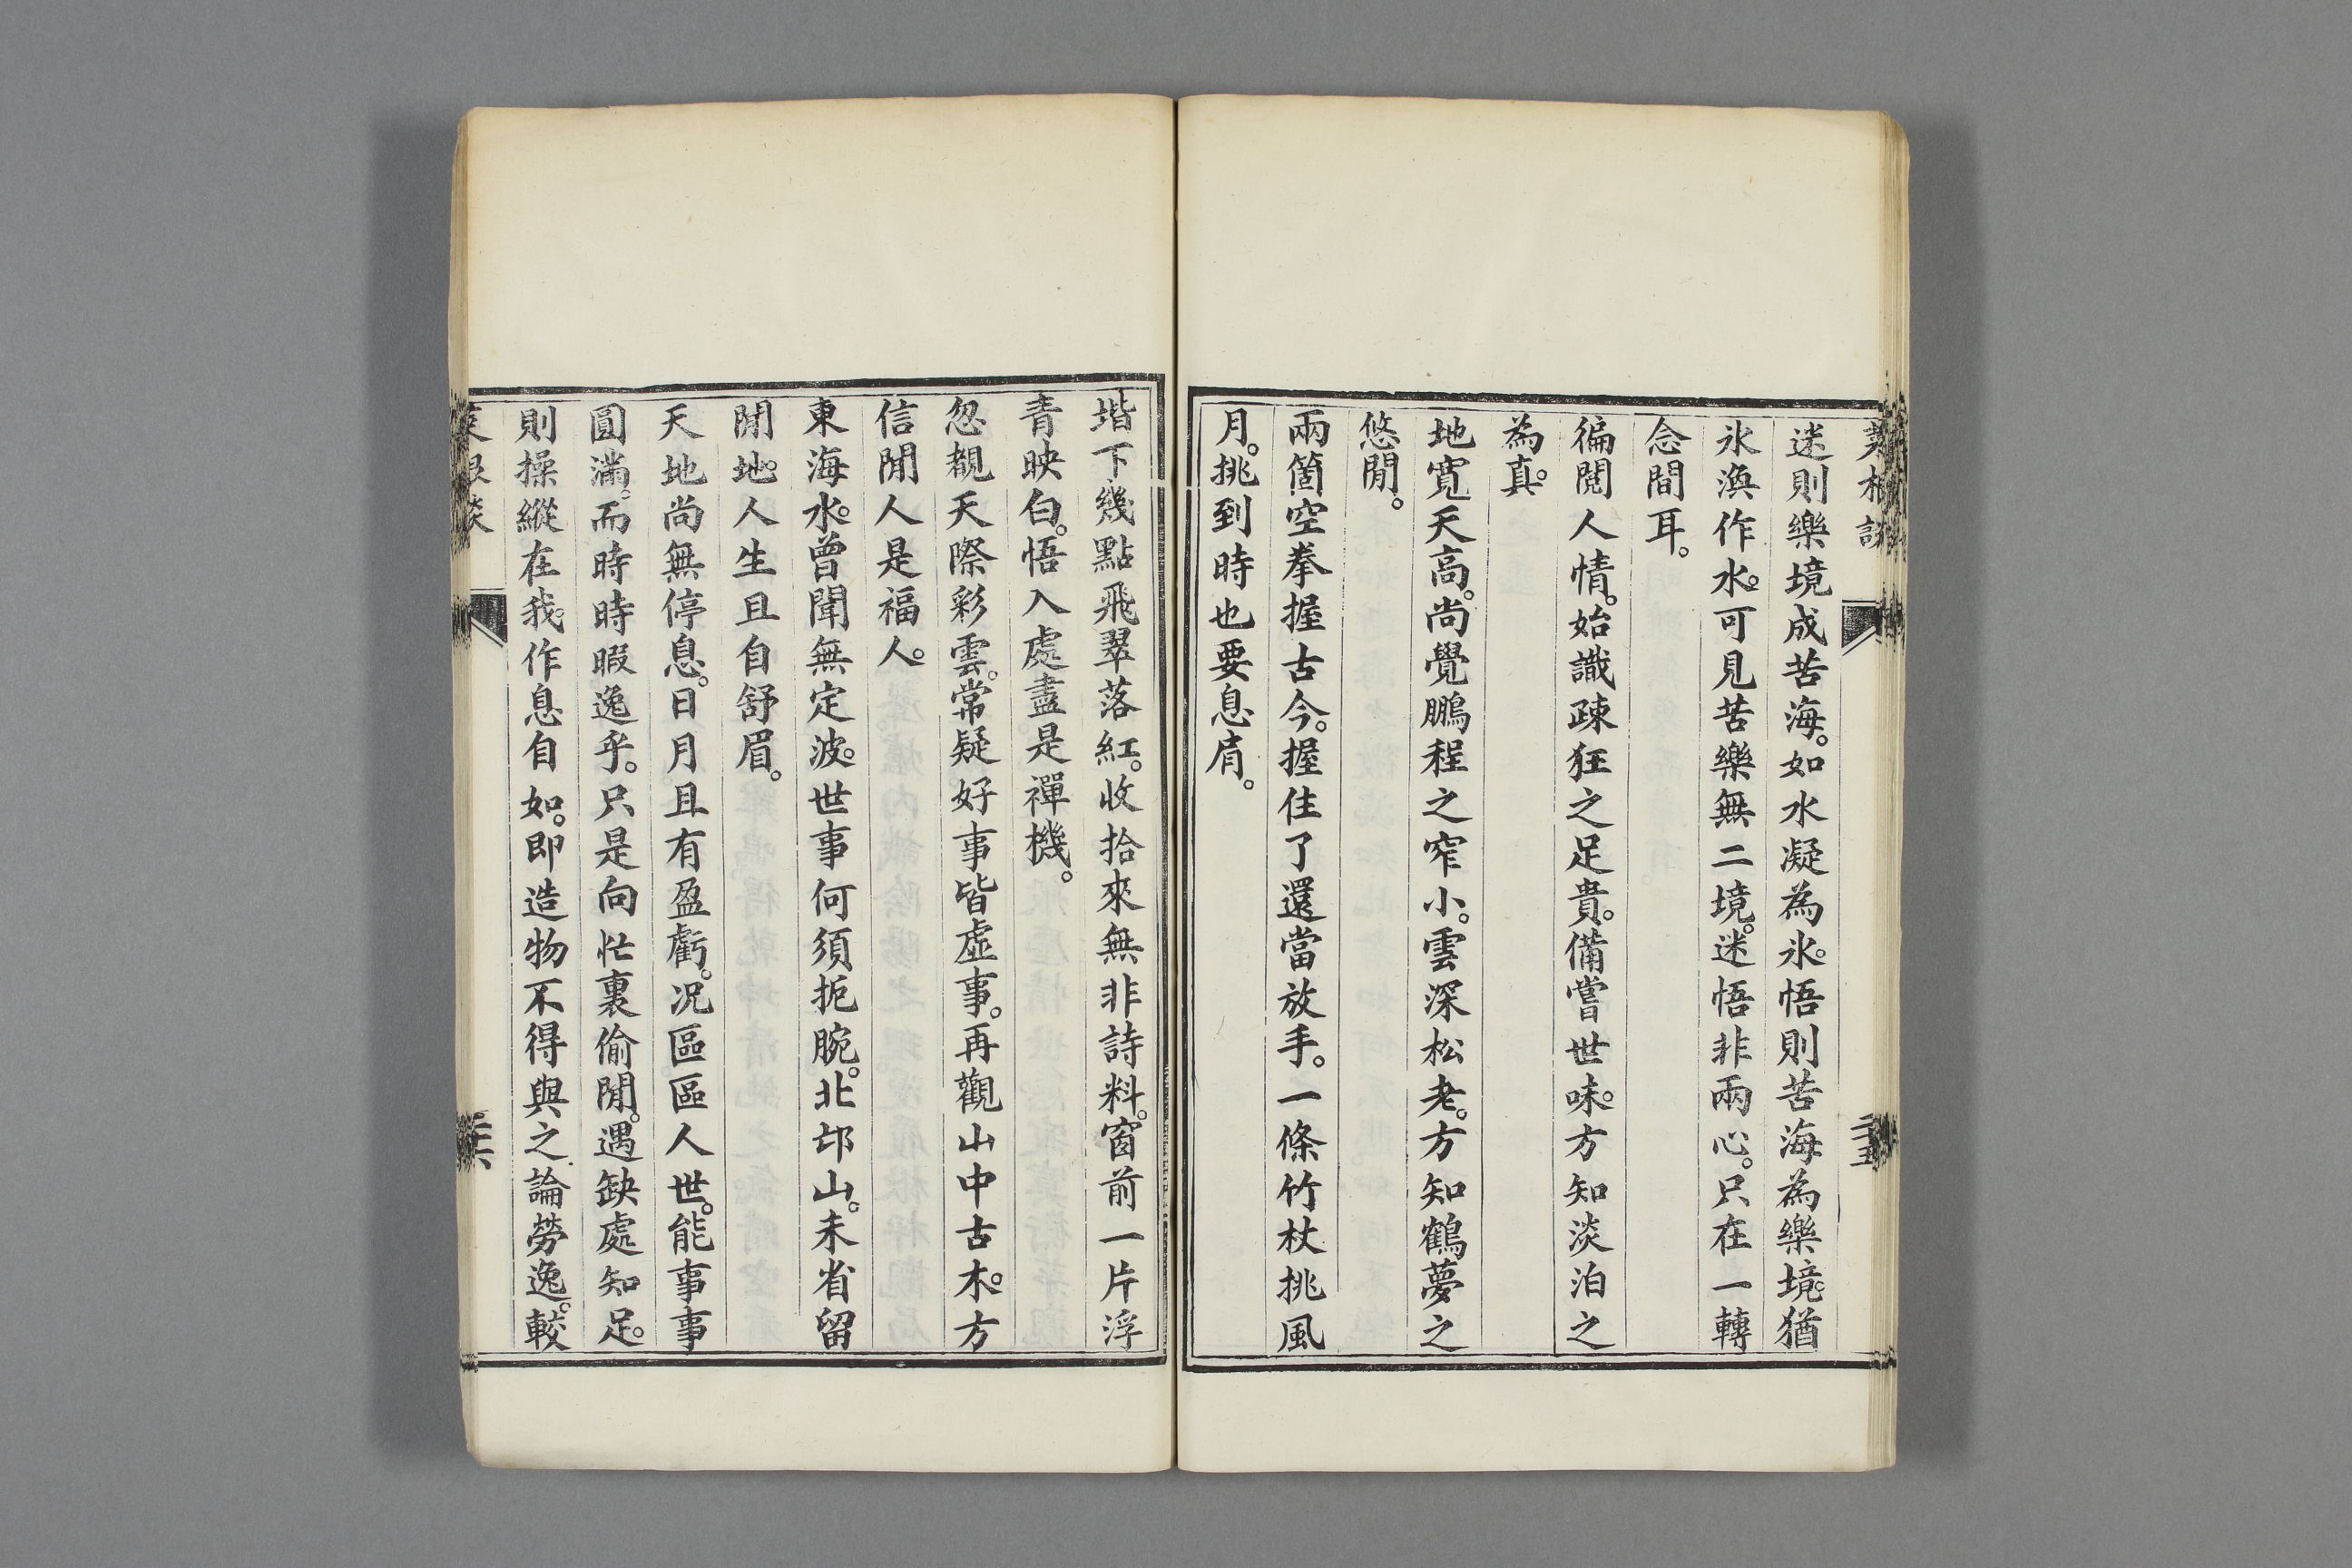 菜根談
二十五
迷則樂境成苦海。如水凝為氷。悟則苦海為樂境。猶
氷渙作水。可見苦樂無二境。迷悟非兩心。只在一轉
念間耳。
徧閱人情。始識疎狂之足貴。備嘗世味。方知淡泊之
為真。
地寬天高。尚覺鵬程之窄小。雲深松老。方知鶴夢之
悠閒。
兩箇空拳握古今。握住了還當放手。一條竹杖挑風
月。挑到時也要息肩。
堦下幾點飛翠落紅。收拾來無非詩料。窗前一片浮
青映白。悟入處盡是禪機。
忽覩天際彩雲。常疑好事皆虛事。再觀山中古木。方
信閒人是福人。
東海水。曾聞無定波。世事何須扼腕。北邙山。未省留
閒地。人生且自舒眉。
天地尚無停息。日月且有盈虧。况區區人世。能事事
圓滿。而時時暇逸乎。只是向忙裏偷閒。遇缺處知足。
則操縱在我。作息自如。即造物不得與之論勞逸。較
菜根談
二十六